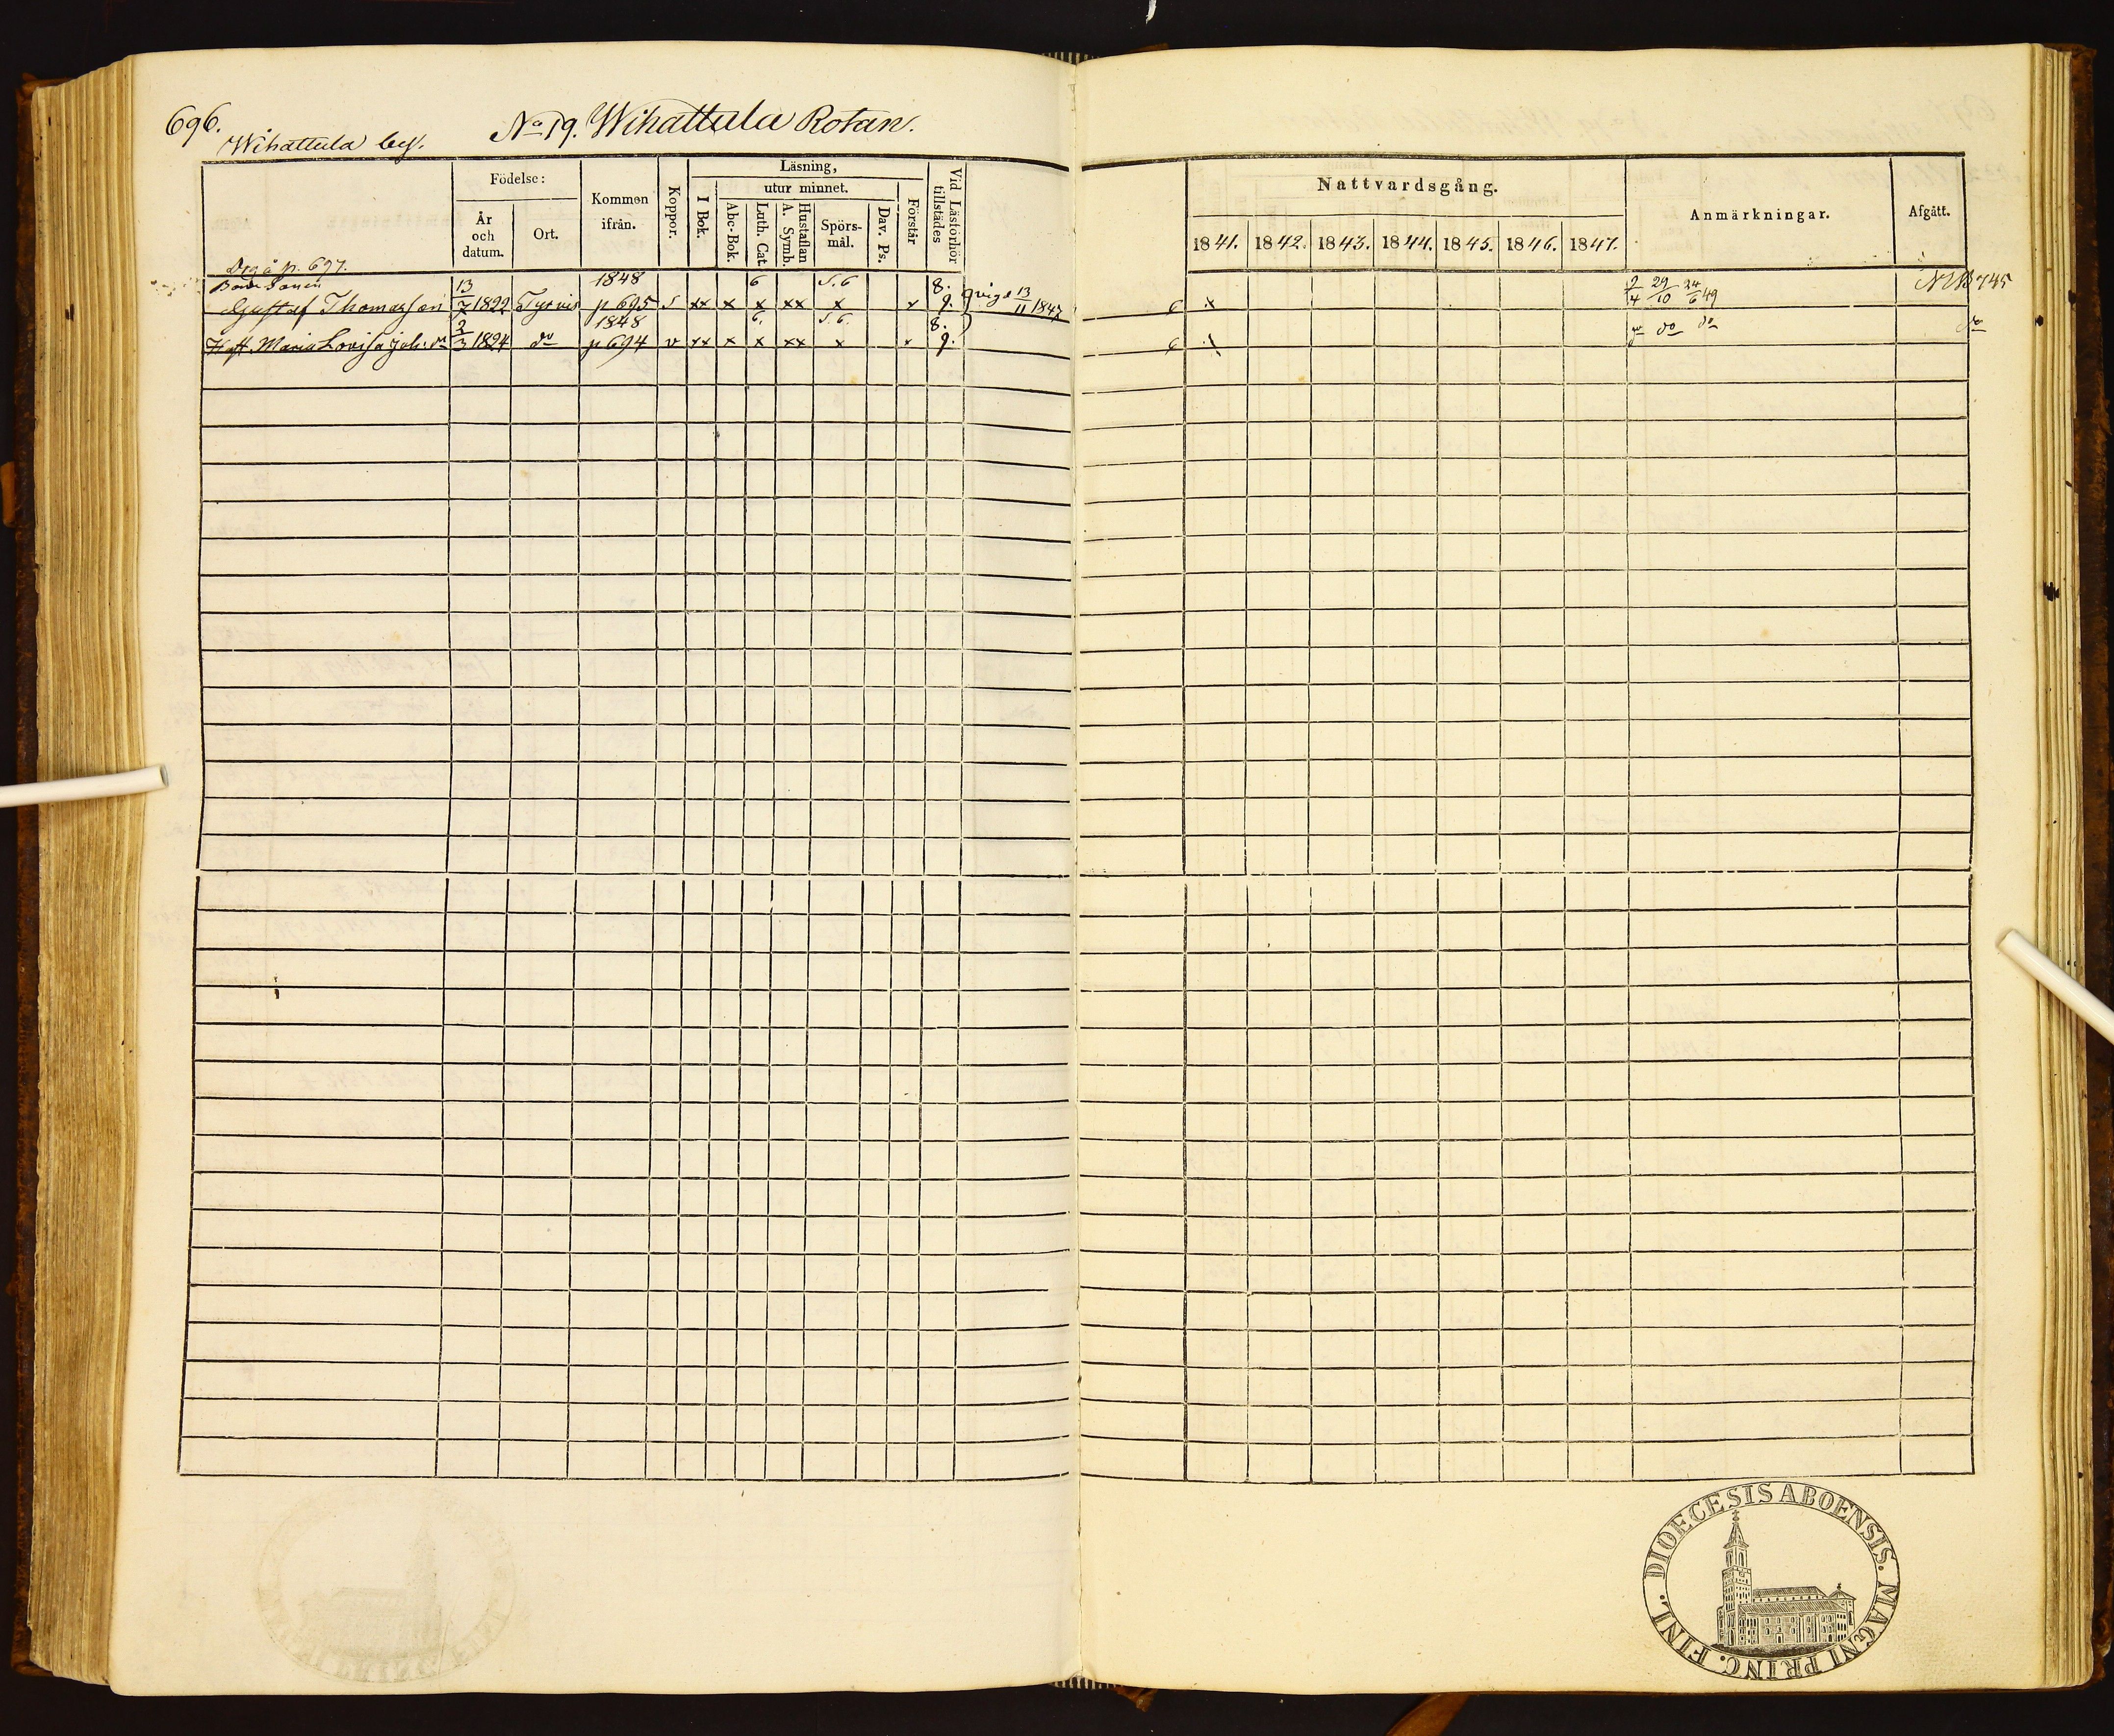 696.
No 19. Wihattula Rotan.
Wihattula by.
Födelse:
År och datum.
Ort.
Kommen ifrån.
Koppor.
Läsning,
I Bok.
utur minnet.
Abc-Bok.
Luth. Cat.
Hustaflan
A. Symb.
Spörs-mål.
Dav. Ps.
Förstår
Vid Läsförhör tillstädes
Nattvardsgång.
1841. 1842. 1843. 1844. 1845. 1846. 1847.
Anmärkningar.
Afgått.
p. 697.
Bonde Sonen 13 1848 6 5.6 8.
Gustaf Thomasson 7 1822 Tyrvis p 695 s xx x x xx x x 9. vigd 13/11 1847 6 x 2/4 29/10 24/6 49 745
2 1848 6. 5.6. 8.
Hust. Maria Lovisa Joh: dr 3 1824 do p 694 v xx x x xx x x 9. 6 x do do do
DIOECESIS ABOENSIS. MAGNI PRINC. FINL.